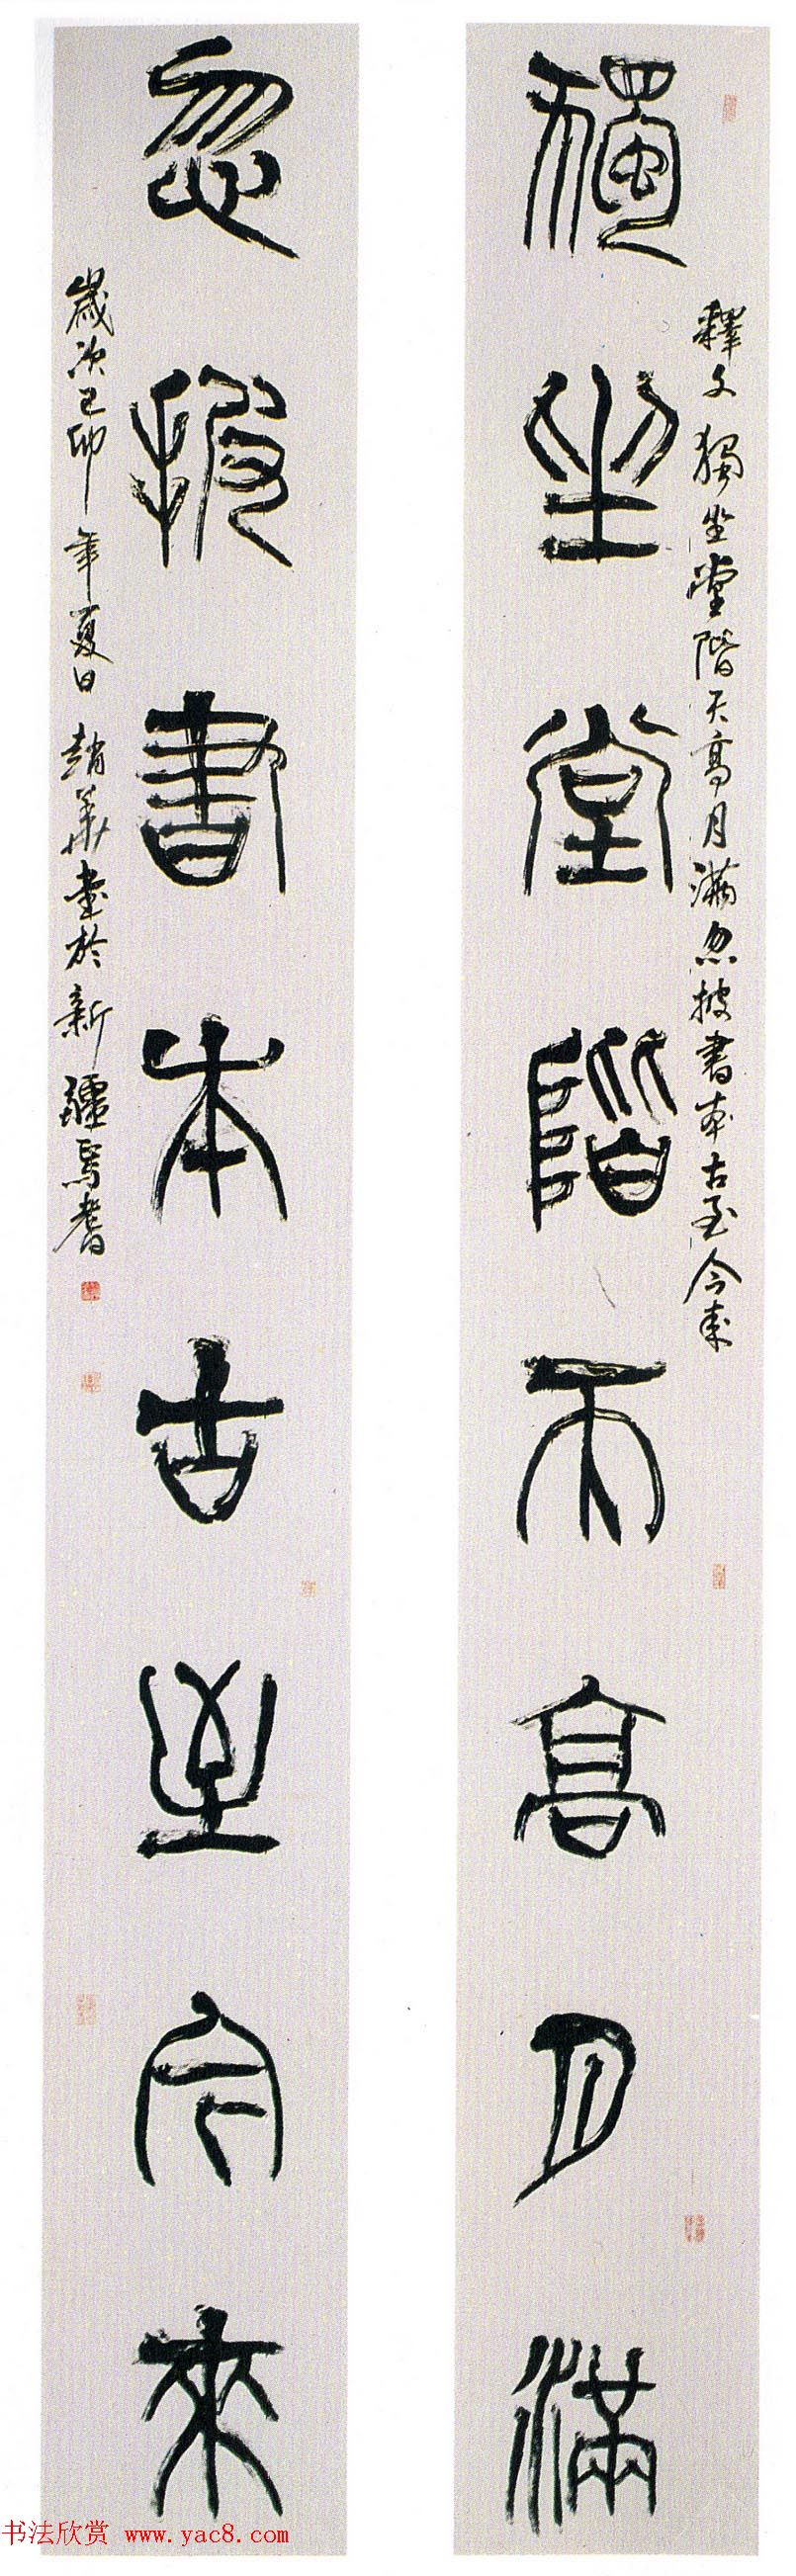 獨坐堂階天高月滿
釋文獨坐堂階天高月滿忽披書本古至今來
忽披書本古至今來
歲次己卯年夏日趙華書於新疆焉耆
书法欣赏 www.yac8.com